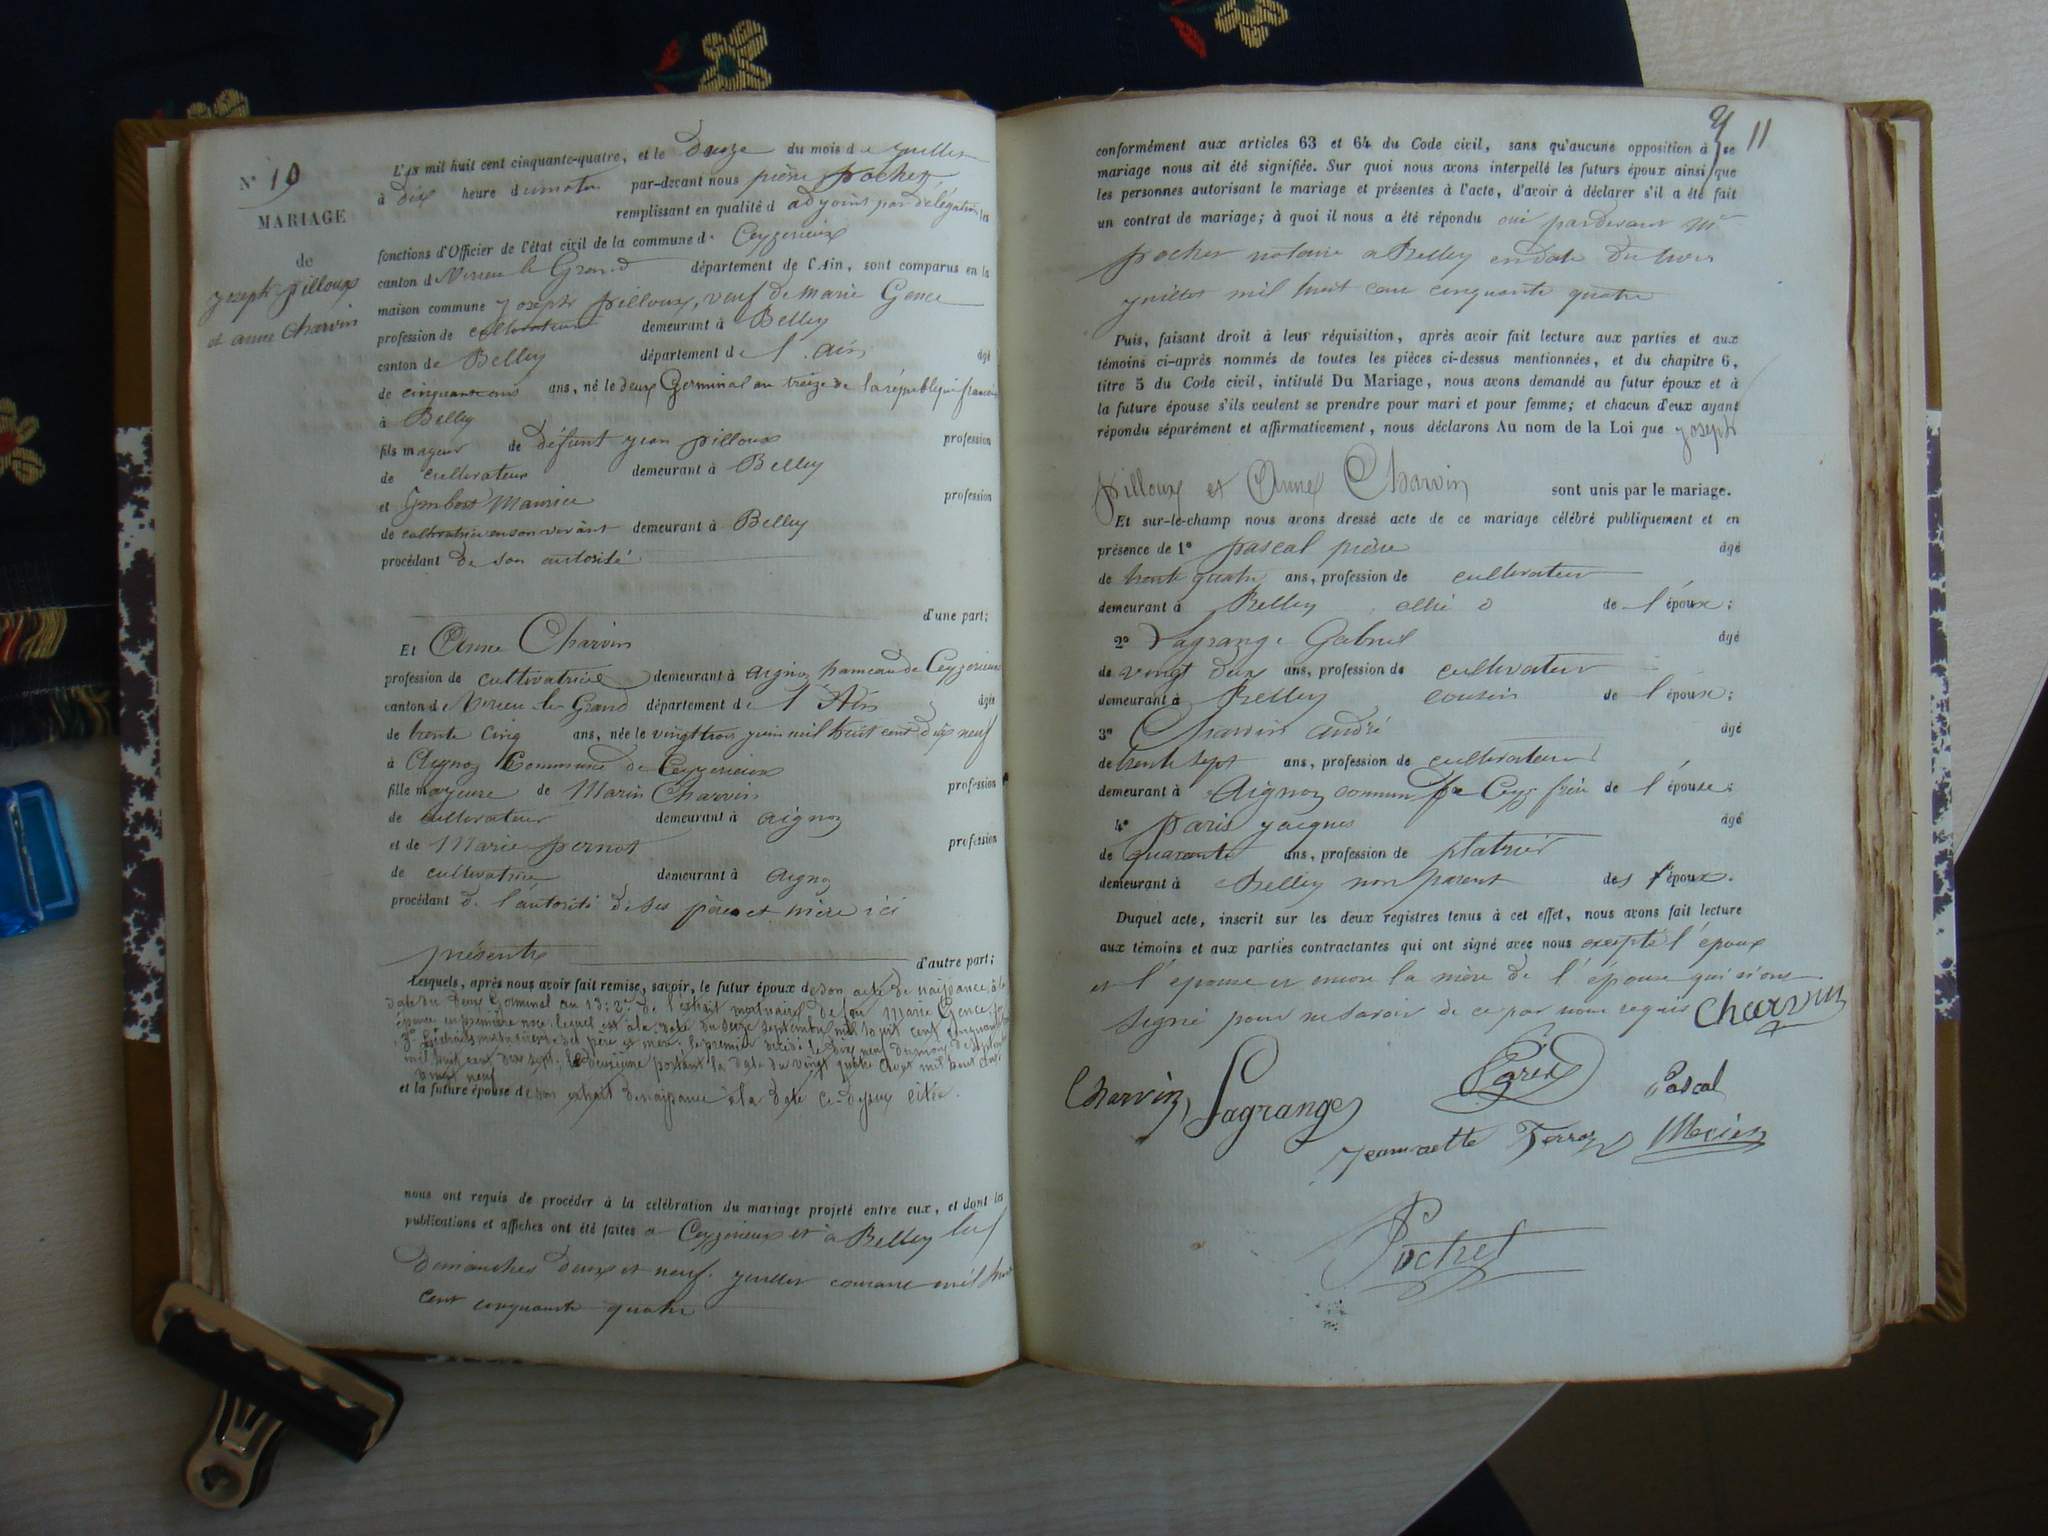 N° 10
MARIAGE
de
joseph pilloux
et anne Charvin
L'an mil huit cent cinquante-quatre, et le douze du mois de juillet
à dix heure du matin par-devant nous pierre pochet
remplissant en qualité d'adjoint par délégation les
fonctions d'Officier de l'état civil de la commune de Ceyzerieux
canton de Virieu le Grand département de l'Ain, sont comparus en la
maison commune joseph pilloux, veuf de Marie Gence
profession de cultivateur demeurant à Belley
canton de Belley département de l'Ain âgé
de ans, né le deux Germinal an treize de la république française
à Belley
fils mayeur de défunt jean pilloux profession
de cultivateur demeurant à Belley
et Maurice profession
de cultivatrice en son vivant demeurant à Belley
procédant de son autorité
d'une part;
Et Anne Charvin
profession de cultivatrice demeurant à aignoz hameau de Ceyzerieux
canton de Virieu le Grand département de l'Ain âgée
de trente cinq ans, née le vingt trois juin mil huit cent dix neuf
à Aignoz Commune de Ceyzerieux
fille mayeure de Marin Charvin profession
de cultivateur demeurant à aignoz
et de Marie pernot profession
de cultivatrice demeurant à aignoz
procédant de l'autorité de ses père et mère ici
présents
d'autre part;
Lesquels, après nous avoir fait remise, savoir, le futur époux de son acte de naissance, à la
date du deux Germinal an 13; 2° de l'extrait mortuaire de feu Marie Gence
épouse en première noce lequel est à la date du seize septembre mil huit cent cinquante
3° Extraits mortuaires des père et mère. le premier décédé le dix neuf du mois de
mil huit cent dix sept. le deuxième portant la date du vingt quatre août mil huit cent
neuf
et la future épouse de son extrait de naissance à la date ci-dessus citée.
nous ont requis de procéder à la célébration du mariage projeté entre eux, et dont les
publications et affiches ont été faites à Ceyzerieux et à Belley les
dimanches deux et neuf juillet courant mil huit
cent cinquante quatre
11
conformément aux articles 63 et 64 du Code civil, sans qu'aucune opposition à ce
mariage nous ait été signifiée. Sur quoi nous avons interpellé les futurs époux ainsi que
les personnes autorisant le mariage et présentes à l'acte, d'avoir à déclarer s'il a été fait
un contrat de mariage; à quoi il nous a été répondu oui pardevant Me
pochet notaire a Belley en date du trois
juillet mil huit cent cinquante quatre
Puis, faisant droit à leur réquisition, après avoir fait lecture aux parties et aux
témoins ci-après nommés de toutes les pièces ci-dessus mentionnées, et du chapitre 6,
titre 5 du Code civil, intitulé Du Mariage, nous avons demandé au futur époux et à
la future épouse s'ils veulent se prendre pour mari et pour femme; et chacun d'eux ayant
répondu séparément et affirmativement, nous déclarons Au nom de la Loi que joseph
pilloux et Anne Charvin sont unis par le mariage.
Et sur-le-champ nous avons dressé acte de ce mariage célébré publiquement et en
présence de 1° pascal pierre âgé
de trente quatre ans, profession de cultivateur
demeurant à Belley allié de l'époux;
2° Lagrange Gabriel âgé
de vingt deux ans, profession de cultivateur
demeurant à Belley cousin de l'époux;
3° Charvin andré âgé
de trente sept ans, profession de cultivateur
demeurant à Aignoz commune de Ceyz frère de l'épouse;
4° paris jacques âgé
de quarante ans, profession de platrier
demeurant à Belley non parent des époux.
Duquel acte, inscrit sur les deux registres tenus à cet effet, nous avons fait lecture
aux témoins et aux parties contractantes qui ont signé avec nous excepté l'époux
et l'épouse et encore la mère de l'épouse qui n'ont
signé pour ne savoir de ce par nous requis Charvin
Charvin Lagrange Paris Pascal
Jeannette
Pochet